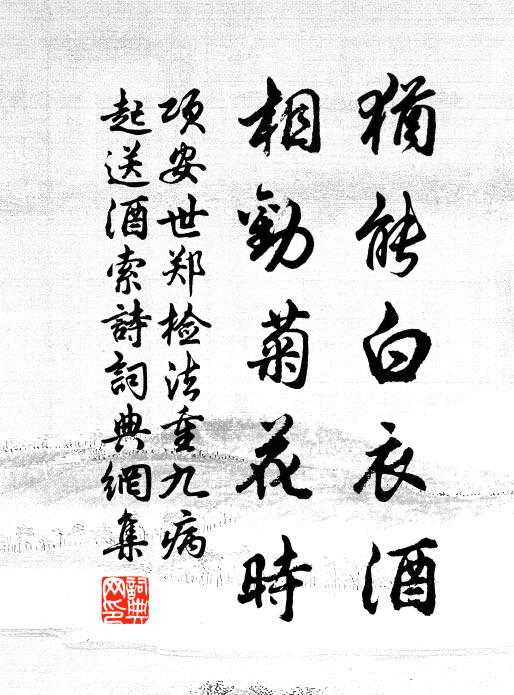 猶能白衣酒
相勸菊花時
项安世郑检法重九病
起送酒索詩詞典網集